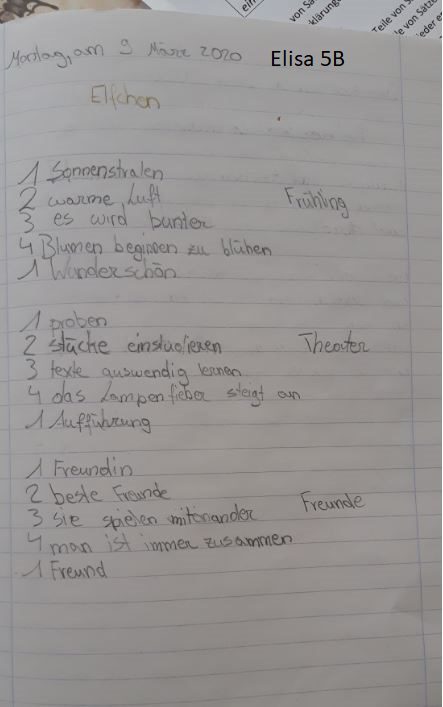 Montag, am 9 März 2020 Elisa 5B
Elfchen
1 Sonnenstralen
2 warme Luft Frühling
3 es wird bunter
4 Blumen beginnen zu blühen
1 Wunderschön
1 proben
2 stücke einstudieren Theater
3 texte auswendig lernen
4 das Lampenfieber steigt an
1 Aufführung
1 Freundin
2 beste Freunde
3 sie spielen mitonander Freunde
4 man ist immer zusammen
1 Freund